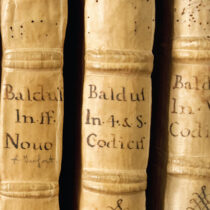 Baldus
In ff.
Novo
Baldus
In. 4 & 5.
Codicis
Baldu
In
Codic